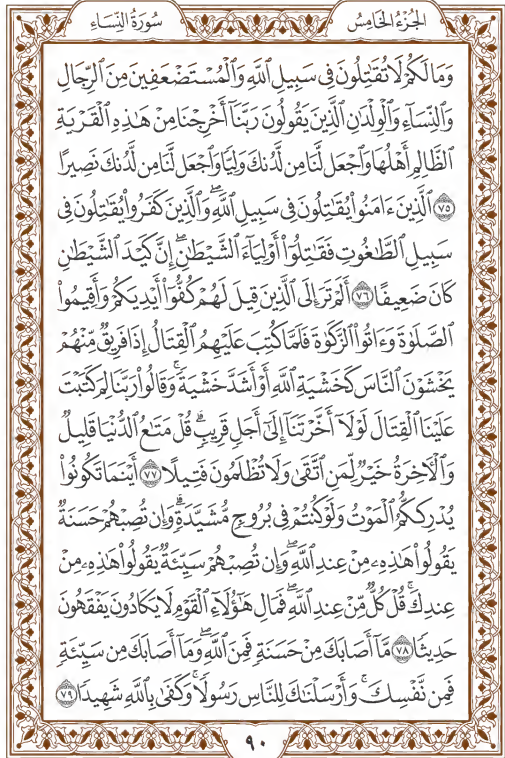 الجُزْءُ الخَامِسُ
سُورَةُ النِّسَاءِ
وَمَا لَكُمْ لَا تُقَٰتِلُونَ فِى سَبِيلِ ٱللَّهِ وَٱلْمُسْتَضْعَفِينَ مِنَ ٱلرِّجَالِ
وَٱلنِّسَآءِ وَٱلْوِلْدَٰنِ ٱلَّذِينَ يَقُولُونَ رَبَّنَآ أَخْرِجْنَا مِنْ هَٰذِهِ ٱلْقَرْيَةِ
ٱلظَّالِمِ أَهْلُهَا وَٱجْعَل لَّنَا مِن لَّدُنكَ وَلِيًّا وَٱجْعَل لَّنَا مِن لَّدُنكَ نَصِيرًا
٧٥ ٱلَّذِينَ ءَامَنُوا۟ يُقَٰتِلُونَ فِى سَبِيلِ ٱللَّهِ ۖ وَٱلَّذِينَ كَفَرُوا۟ يُقَٰتِلُونَ فِى
سَبِيلِ ٱلطَّٰغُوتِ فَقَٰتِلُوٓا۟ أَوْلِيَآءَ ٱلشَّيْطَٰنِ ۖ إِنَّ كَيْدَ ٱلشَّيْطَٰنِ
كَانَ ضَعِيفًا ٧٦ أَلَمْ تَرَ إِلَى ٱلَّذِينَ قِيلَ لَهُمْ كُفُّوٓا۟ أَيْدِيَكُمْ وَأَقِيمُوا۟
ٱلصَّلَوٰةَ وَءَاتُوا۟ ٱلزَّكَوٰةَ فَلَمَّا كُتِبَ عَلَيْهِمُ ٱلْقِتَالُ إِذَا فَرِيقٌ مِّنْهُمْ
يَخْشَوْنَ ٱلنَّاسَ كَخَشْيَةِ ٱللَّهِ أَوْ أَشَدَّ خَشْيَةً ۚ وَقَالُوا۟ رَبَّنَا لِمَ كَتَبْتَ
عَلَيْنَا ٱلْقِتَالَ لَوْلَآ أَخَّرْتَنَآ إِلَىٰٓ أَجَلٍ قَرِيبٍ ۗ قُلْ مَتَٰعُ ٱلدُّنْيَا قَلِيلٌ
وَٱلْءَاخِرَةُ خَيْرٌ لِّمَنِ ٱتَّقَىٰ وَلَا تُظْلَمُونَ فَتِيلًا ٧٧ أَيْنَمَا تَكُونُوا۟
يُدْرِككُّمُ ٱلْمَوْتُ وَلَوْ كُنتُمْ فِى بُرُوجٍ مُّشَيَّدَةٍ ۗ وَإِن تُصِبْهُمْ حَسَنَةٌ
يَقُولُوا۟ هَٰذِهِۦ مِنْ عِندِ ٱللَّهِ ۖ وَإِن تُصِبْهُمْ سَيِّئَةٌ يَقُولُوا۟ هَٰذِهِۦ مِنْ
عِندِكَ ۚ قُلْ كُلٌّ مِّنْ عِندِ ٱللَّهِ ۖ فَمَالِ هَٰٓؤُلَآءِ ٱلْقَوْمِ لَا يَكَادُونَ يَفْقَهُونَ
حَدِيثًا ٧٨ مَّآ أَصَابَكَ مِنْ حَسَنَةٍ فَمِنَ ٱللَّهِ ۖ وَمَآ أَصَابَكَ مِن سَيِّئَةٍ
فَمِن نَّفْسِكَ ۚ وَأَرْسَلْنَٰكَ لِلنَّاسِ رَسُولًا ۚ وَكَفَىٰ بِٱللَّهِ شَهِيدًا ٧٩
٩٠